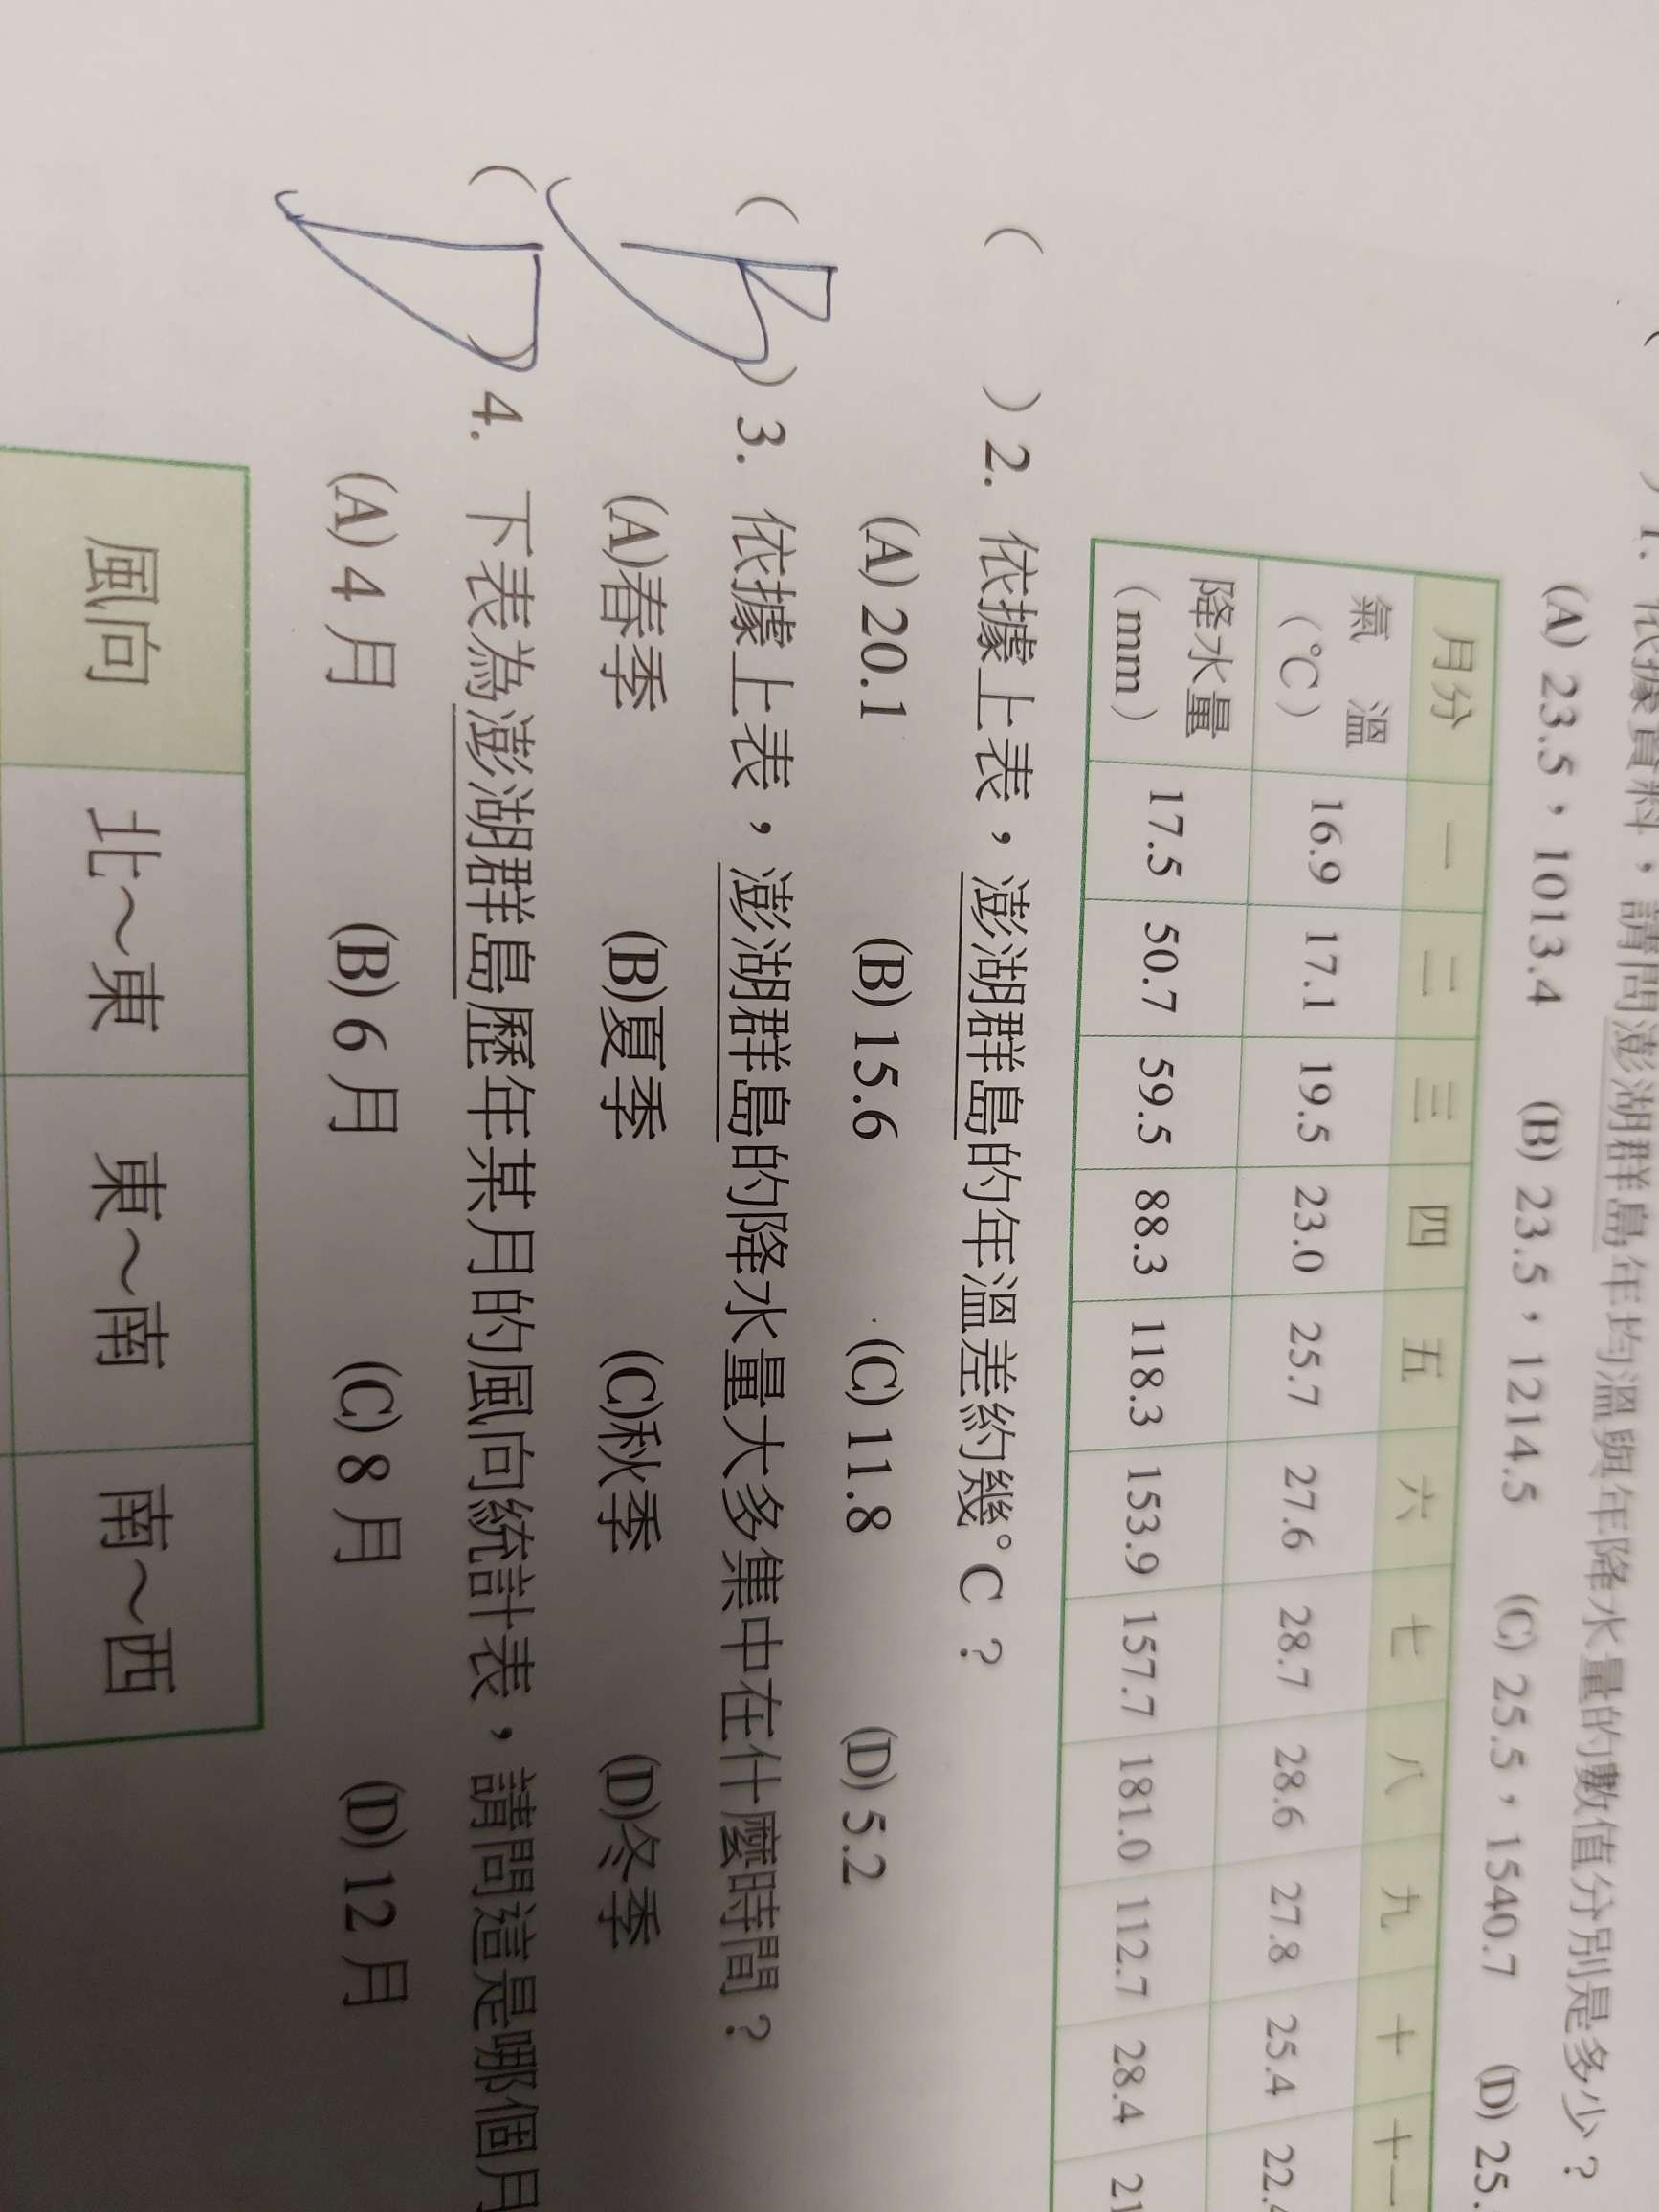 )1. 依據資料，請問澎湖群島年均溫與年降水量的數值分別是多少？
(A) 23.5，1013.4 (B) 23.5，1214.5 (C) 25.5，1540.7 (D) 25.
月分 一 二 三 四 五 六 七 八 九 十 十一
氣溫（℃） 16.9 17.1 19.5 23.0 25.7 27.6 28.7 28.6 27.8 25.4 22.4
降水量（mm） 17.5 50.7 59.5 88.3 118.3 153.9 157.7 181.0 112.7 28.4 21
( )2. 依據上表，澎湖群島的年溫差約幾°C？
(A) 20.1 (B) 15.6 (C) 11.8 (D) 5.2
(B)3. 依據上表，澎湖群島的降水量大多集中在什麼時間？
(A)春季 (B)夏季 (C)秋季 (D)冬季
(D)4. 下表為澎湖群島歷年某月的風向統計表，請問這是哪個月
(A) 4 月 (B) 6 月 (C) 8 月 (D) 12 月
風向 北～東 東～南 南～西